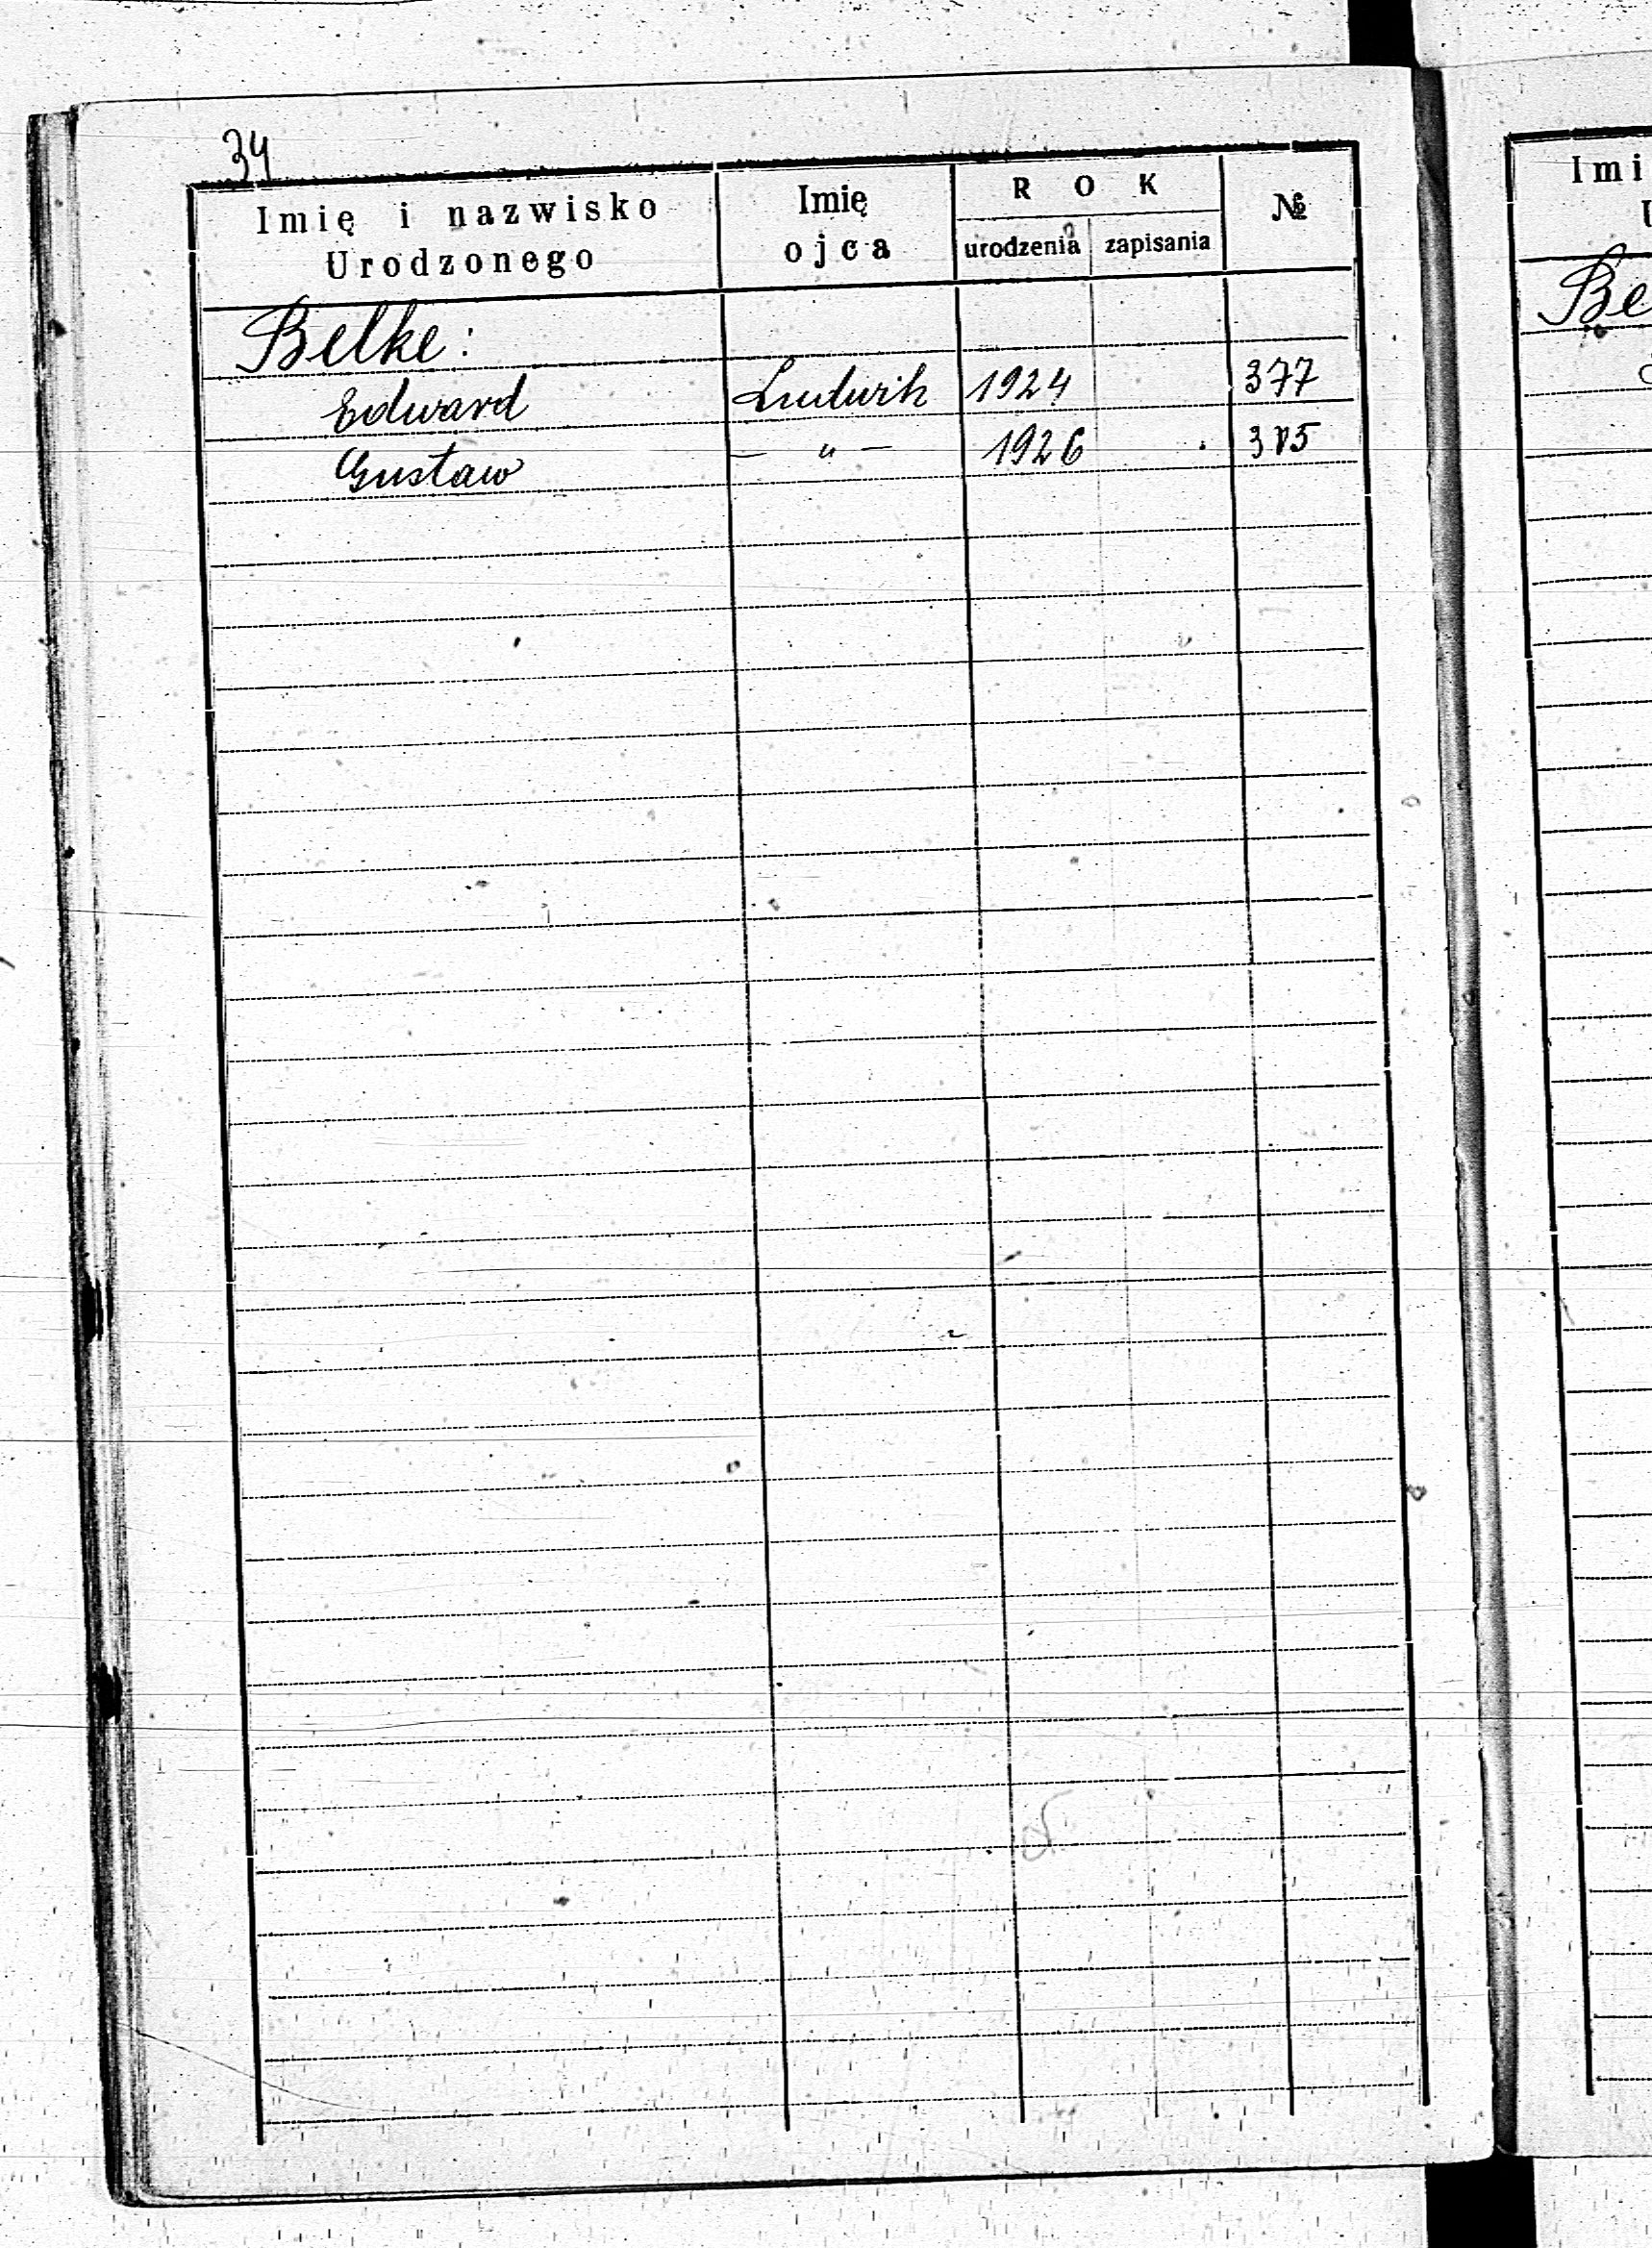 34
Imię i nazwisko Urodzonego Imię ojca ROK urodzenia zapisania №
Belke:
Edward Ludwik 1924 377
Gustaw — " — 1926 385
Imi
Be